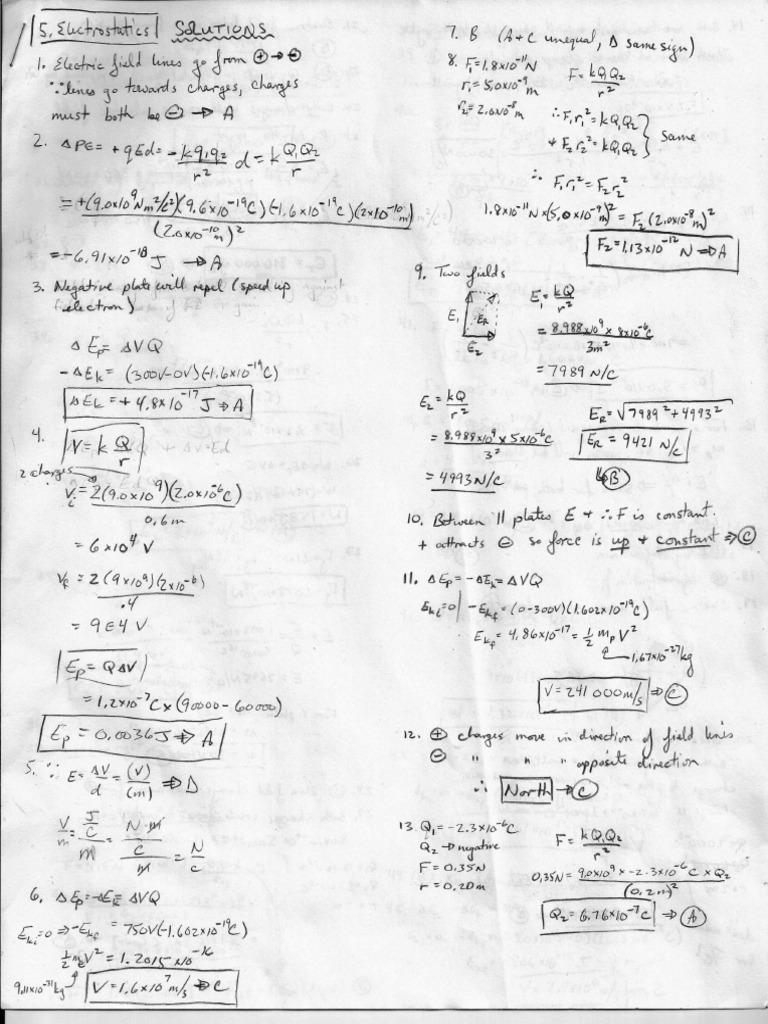 5. Electrostatics SOLUTIONS
1. Electric field lines go from ⊕→⊖
∵ lines go towards charges, charges
must both be ⊖ → A
2. ΔPE = +qEd = -kq₁q₂/r² d = kQ₁Q₂/r
= +(9.0x10⁹Nm²/c²)(9.6x10⁻¹⁹C)(-1.6x10⁻¹⁹C)(2x10⁻¹⁰m)/(2.0x10⁻¹⁰m)²
= -6.91x10⁻¹⁸ J → A
3. Negative plate will repel (speed up
electron)
ΔEp = ΔVQ
-ΔEk = (300V-0V)(-1.6x10⁻¹⁹C)
ΔEk = +4.8x10⁻¹⁷ J → A
4. V = k Q/r
2 charges
Vi = 2(9.0x10⁹)(2.0x10⁻⁶C)/0.6m
= 6x10⁴ V
Vf = 2(9x10⁹)(2x10⁻⁶)/.4
= 9E4 V
Ep = QΔV
= 1.2x10⁻⁷C x (90000-60000)
Ep = 0.0036J → A
5. ∵ E = ΔV/d = (V)/(m) ⇒ D
V/m = J/C/m = N·m/C/m = N/C
6. ΔEp = -ΔEk = ΔVQ
Eki=0 ⇒ -Ekf = 750V(-1.602x10⁻¹⁹C)
½mev² = 1.2015x10⁻¹⁶
9.11x10⁻³¹kg
V = 1.6x10⁷ m/s → C
7. B (A+C unequal, D same sign)
8. F₁=1.8x10⁻¹¹N F = kQ₁Q₂/r²
r₁=5.0x10⁻⁹m
r₂=2.0x10⁻⁸m ∴ F₁r₁² = kQ₁Q₂
+ F₂r₂² = kQ₁Q₂ } Same
∴ F₁r₁² = F₂r₂²
1.8x10⁻¹¹Nx(5.0x10⁻⁹m)² = F₂(2.0x10⁻⁸m)²
F₂=1.13x10⁻¹² N ⇒ A
9. Two fields
E₁ ER E₂
E₁ = kQ/r²
= 8.988x10⁹ x 8x10⁻⁶C/3m²
= 7989 N/C
E₂ = kQ/r²
= 8.988x10⁹ x 5x10⁻⁶C/3²
= 4993N/C
ER = √7989² + 4993²
ER = 9421 N/c
↳ B
10. Between || plates E + ∴ F is constant.
+ attracts ⊖ so force is up + constant ⇒ C
11. ΔEp = -ΔEk = ΔVQ
Eki=0 | -Ekf = (0-300V)(1.602x10⁻¹⁹C)
Ekf = 4.86x10⁻¹⁷ = ½ mp V²
1.67x10⁻²⁷kg
V = 241 000m/s ⇒ C
12. ⊕ charges move in direction of field lines
⊖ " " " opposite direction
∴ North → C
13. Q₁=-2.3x10⁻⁶C F = kQ₁Q₂/r²
Q₂ → negative
F = 0.35N
r = 0.20m
0.35N = 9.0x10⁹ x -2.3x10⁻⁶C x Q₂/(0.2m)²
Q₂ = 6.76x10⁻⁷C → A